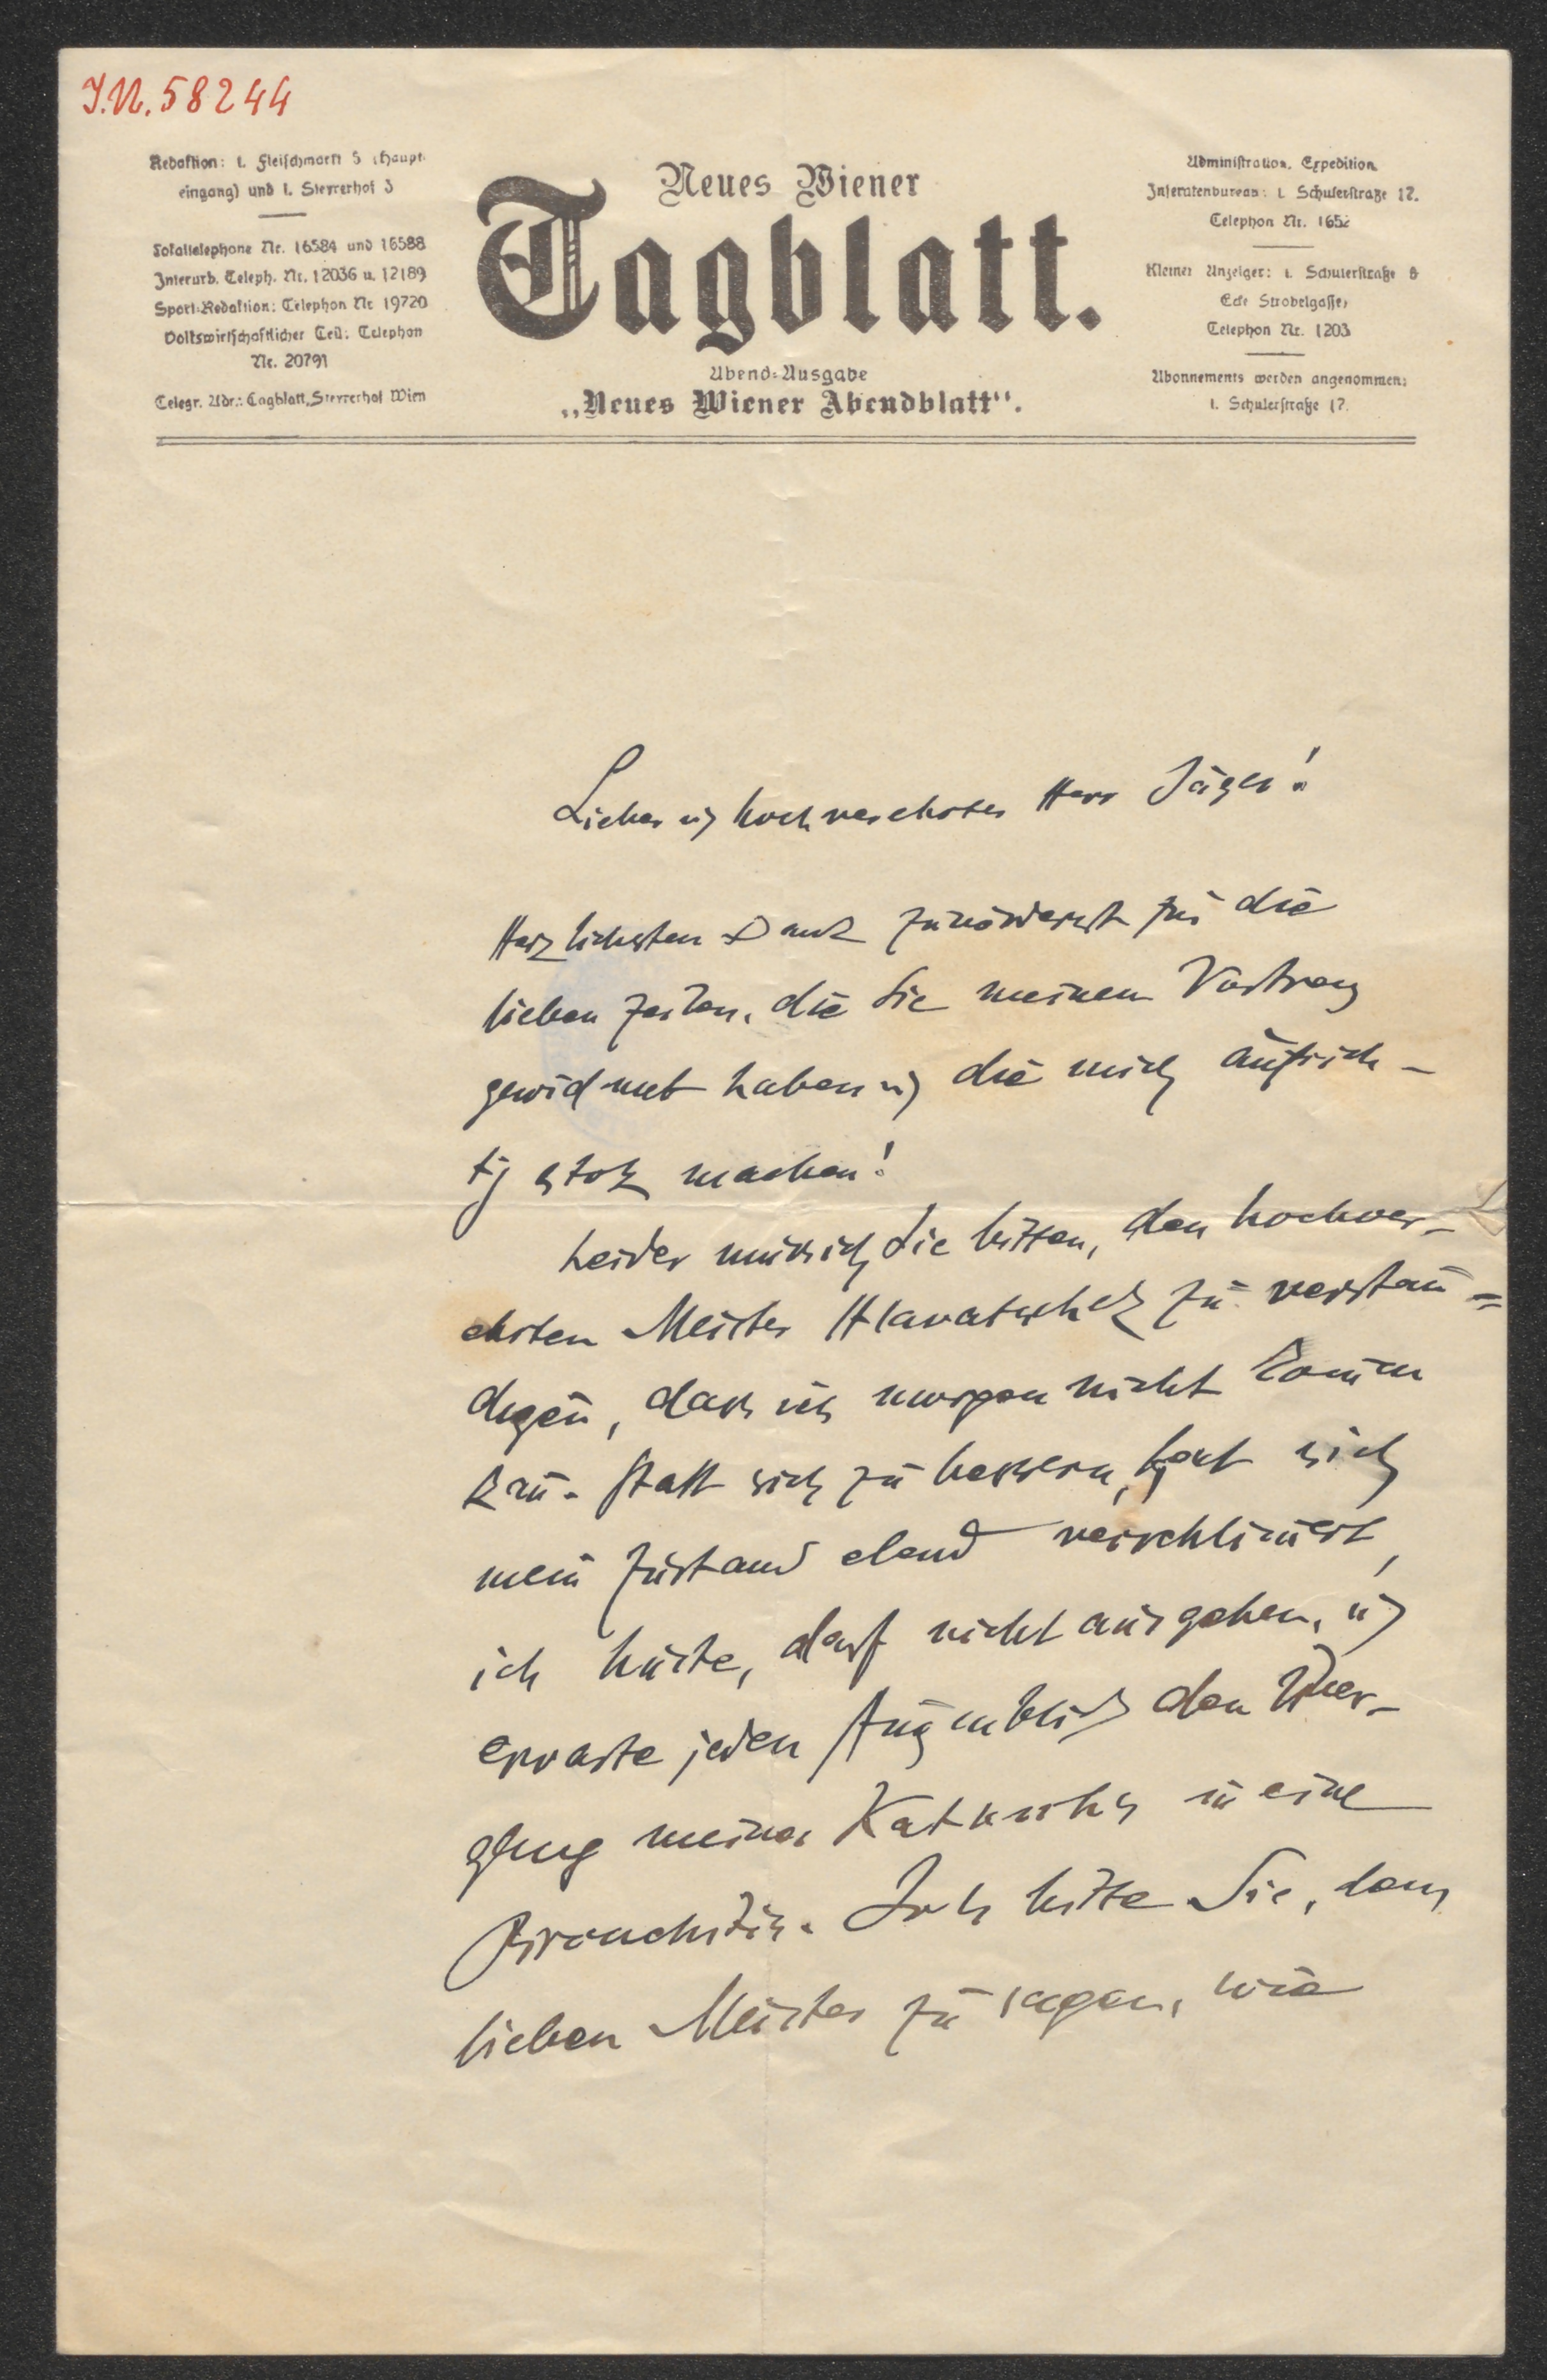 I.N. 58244
Redaktion: I. Fleischmarkt 5 (Haupt-
eingang) und I. Steyrerhof 3
Lokaltelephone Nr. 16584 und 16588
Interurb. Teleph. Nr. 12036 u. 12189
Sport-Redaktion: Telephon Nr 19720
Volkswirtschaftlicher Teil: Telephon
Nr. 20791
Telegr. Adr.: Tagblatt, Steyrerhof Wien
Neues Wiener
Tagblatt.
Abend-Ausgabe
„Neues Wiener Abendblatt“.
Administration, Expedition
Inseratenbureau: I. Schulerstraße 17.
Telephon Nr. 1652
Kleiner Anzeiger: I. Schulerstraße 8
Ecke Strobelgasse,
Telephon Nr. 1203
Abonnements werden angenommen:
I. Schulerstraße 17.
Lieber u. hochverehrter Herr Jäger!
Herzlichsten Dank zuvörderst für die
lieben Zeilen, die Sie meinem Vortrag
gewidmet haben u. die mich aufrich-
tig stolz machen!
Leider muß ich Sie bitten, den hochver-
ehrten Meister Hlavatschek zu verstän-
digen, dass ich morgen nicht kommen
kann. Statt sich zu bessern, hat sich
mein Zustand elend verschlimmert,
ich huste, darf nicht ausgehen, u.
erwarte jeden Augenblick den Über-
gang meines Katarrhs in eine
Bronchitis. Ich bitte Sie, dem
lieben Meister zu sagen, wie